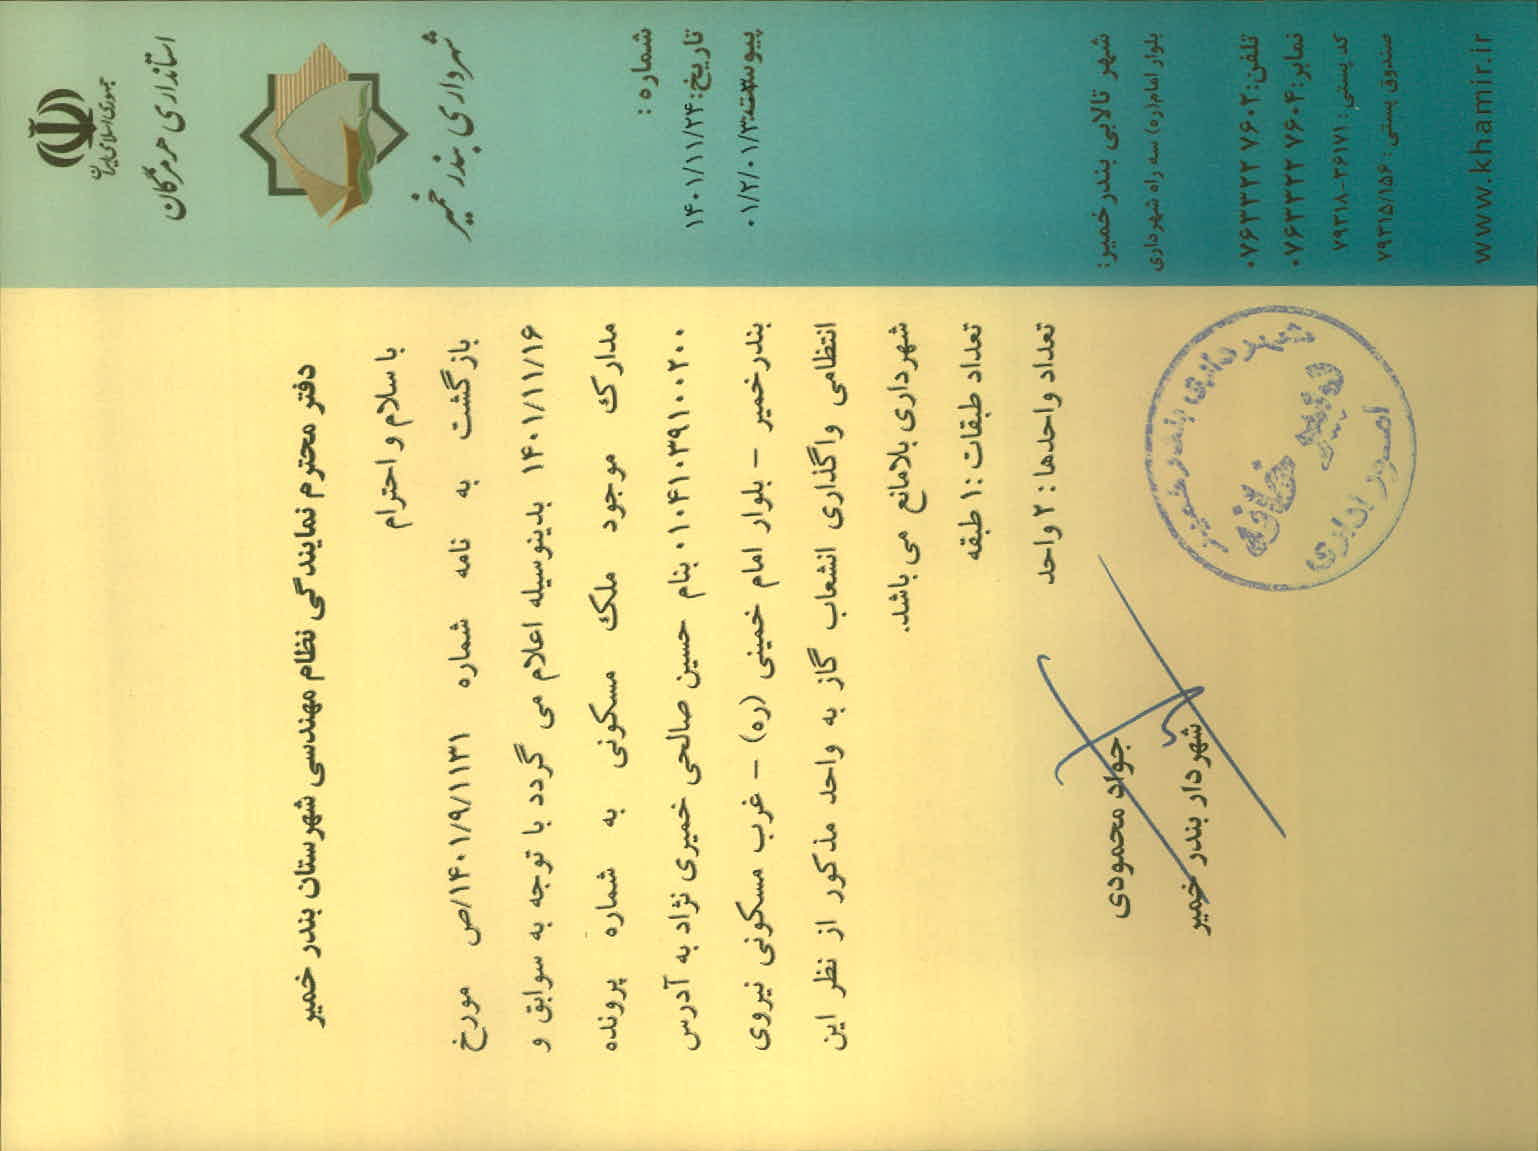 جمهوری اسلامی ایران
استانداری هرمزگان
شهرداری بندر خمیر
شماره :
تاریخ: ۱۴۰۱/۱۱/۲۴
پیوست:
دفتر محترم نمایندگی نظام مهندسی شهرستان بندر خمیر
با سلام و احترام
بازگشت به نامه شماره ۱۴۰۱/۹/۱۱۳۱/ص مورخ
۱۴۰۱/۱۱/۱۶ بدینوسیله اعلام می گردد با توجه به سوابق و
مدارک موجود ملک مسکونی به شماره پرونده
۰۱۰۴۱۰۳۹۱۰۰۲۰۰ بنام حسین صالحی خمیری نژاد به آدرس
بندرخمیر - بلوار امام خمینی (ره) - غرب مسکونی نیروی
انتظامی واگذاری انشعاب گاز به واحد مذکور از نظر این
شهرداری بلامانع می باشد.
تعداد طبقات :۱ طبقه
تعداد واحدها : ۲ واحد
جواد محمودی
شهردار بندر خمیر
شهرداری بندر خمیر
دبیرخانه
امور اداری
شهر تالابی بندرخمیر:
بلوار امام(ره) سه راه شهرداری
تلفن: ۰۷۶۳۳۲۲۷۶۰۲
نمابر: ۰۷۶۳۳۲۲۷۶۰۴
کد پستی : ۳۶۱۷۱-۷۹۳۱۸
صندوق پستی : ۷۹۳۱۵/۱۵۶
www.khamir.ir